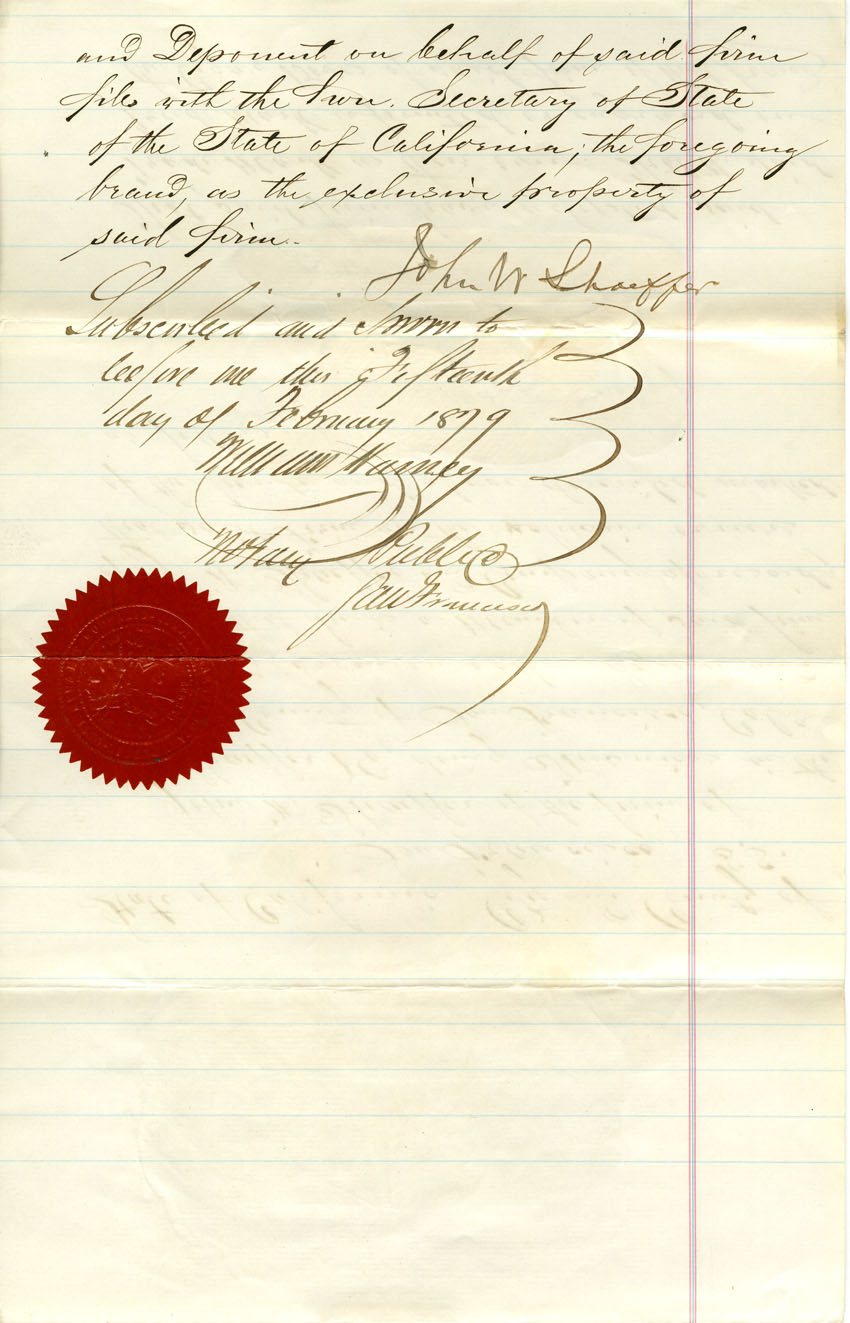 and Deponent on behalf of said firm
files with the Hon. Secretary of State
of the State of California, the foregoing
brand, as the exclusive property of
said firm.
John W Shaeffer
Subscribed and sworn to
before me this Fifteenth
day of February 1879
William Harney
Notary Public
San Francisco